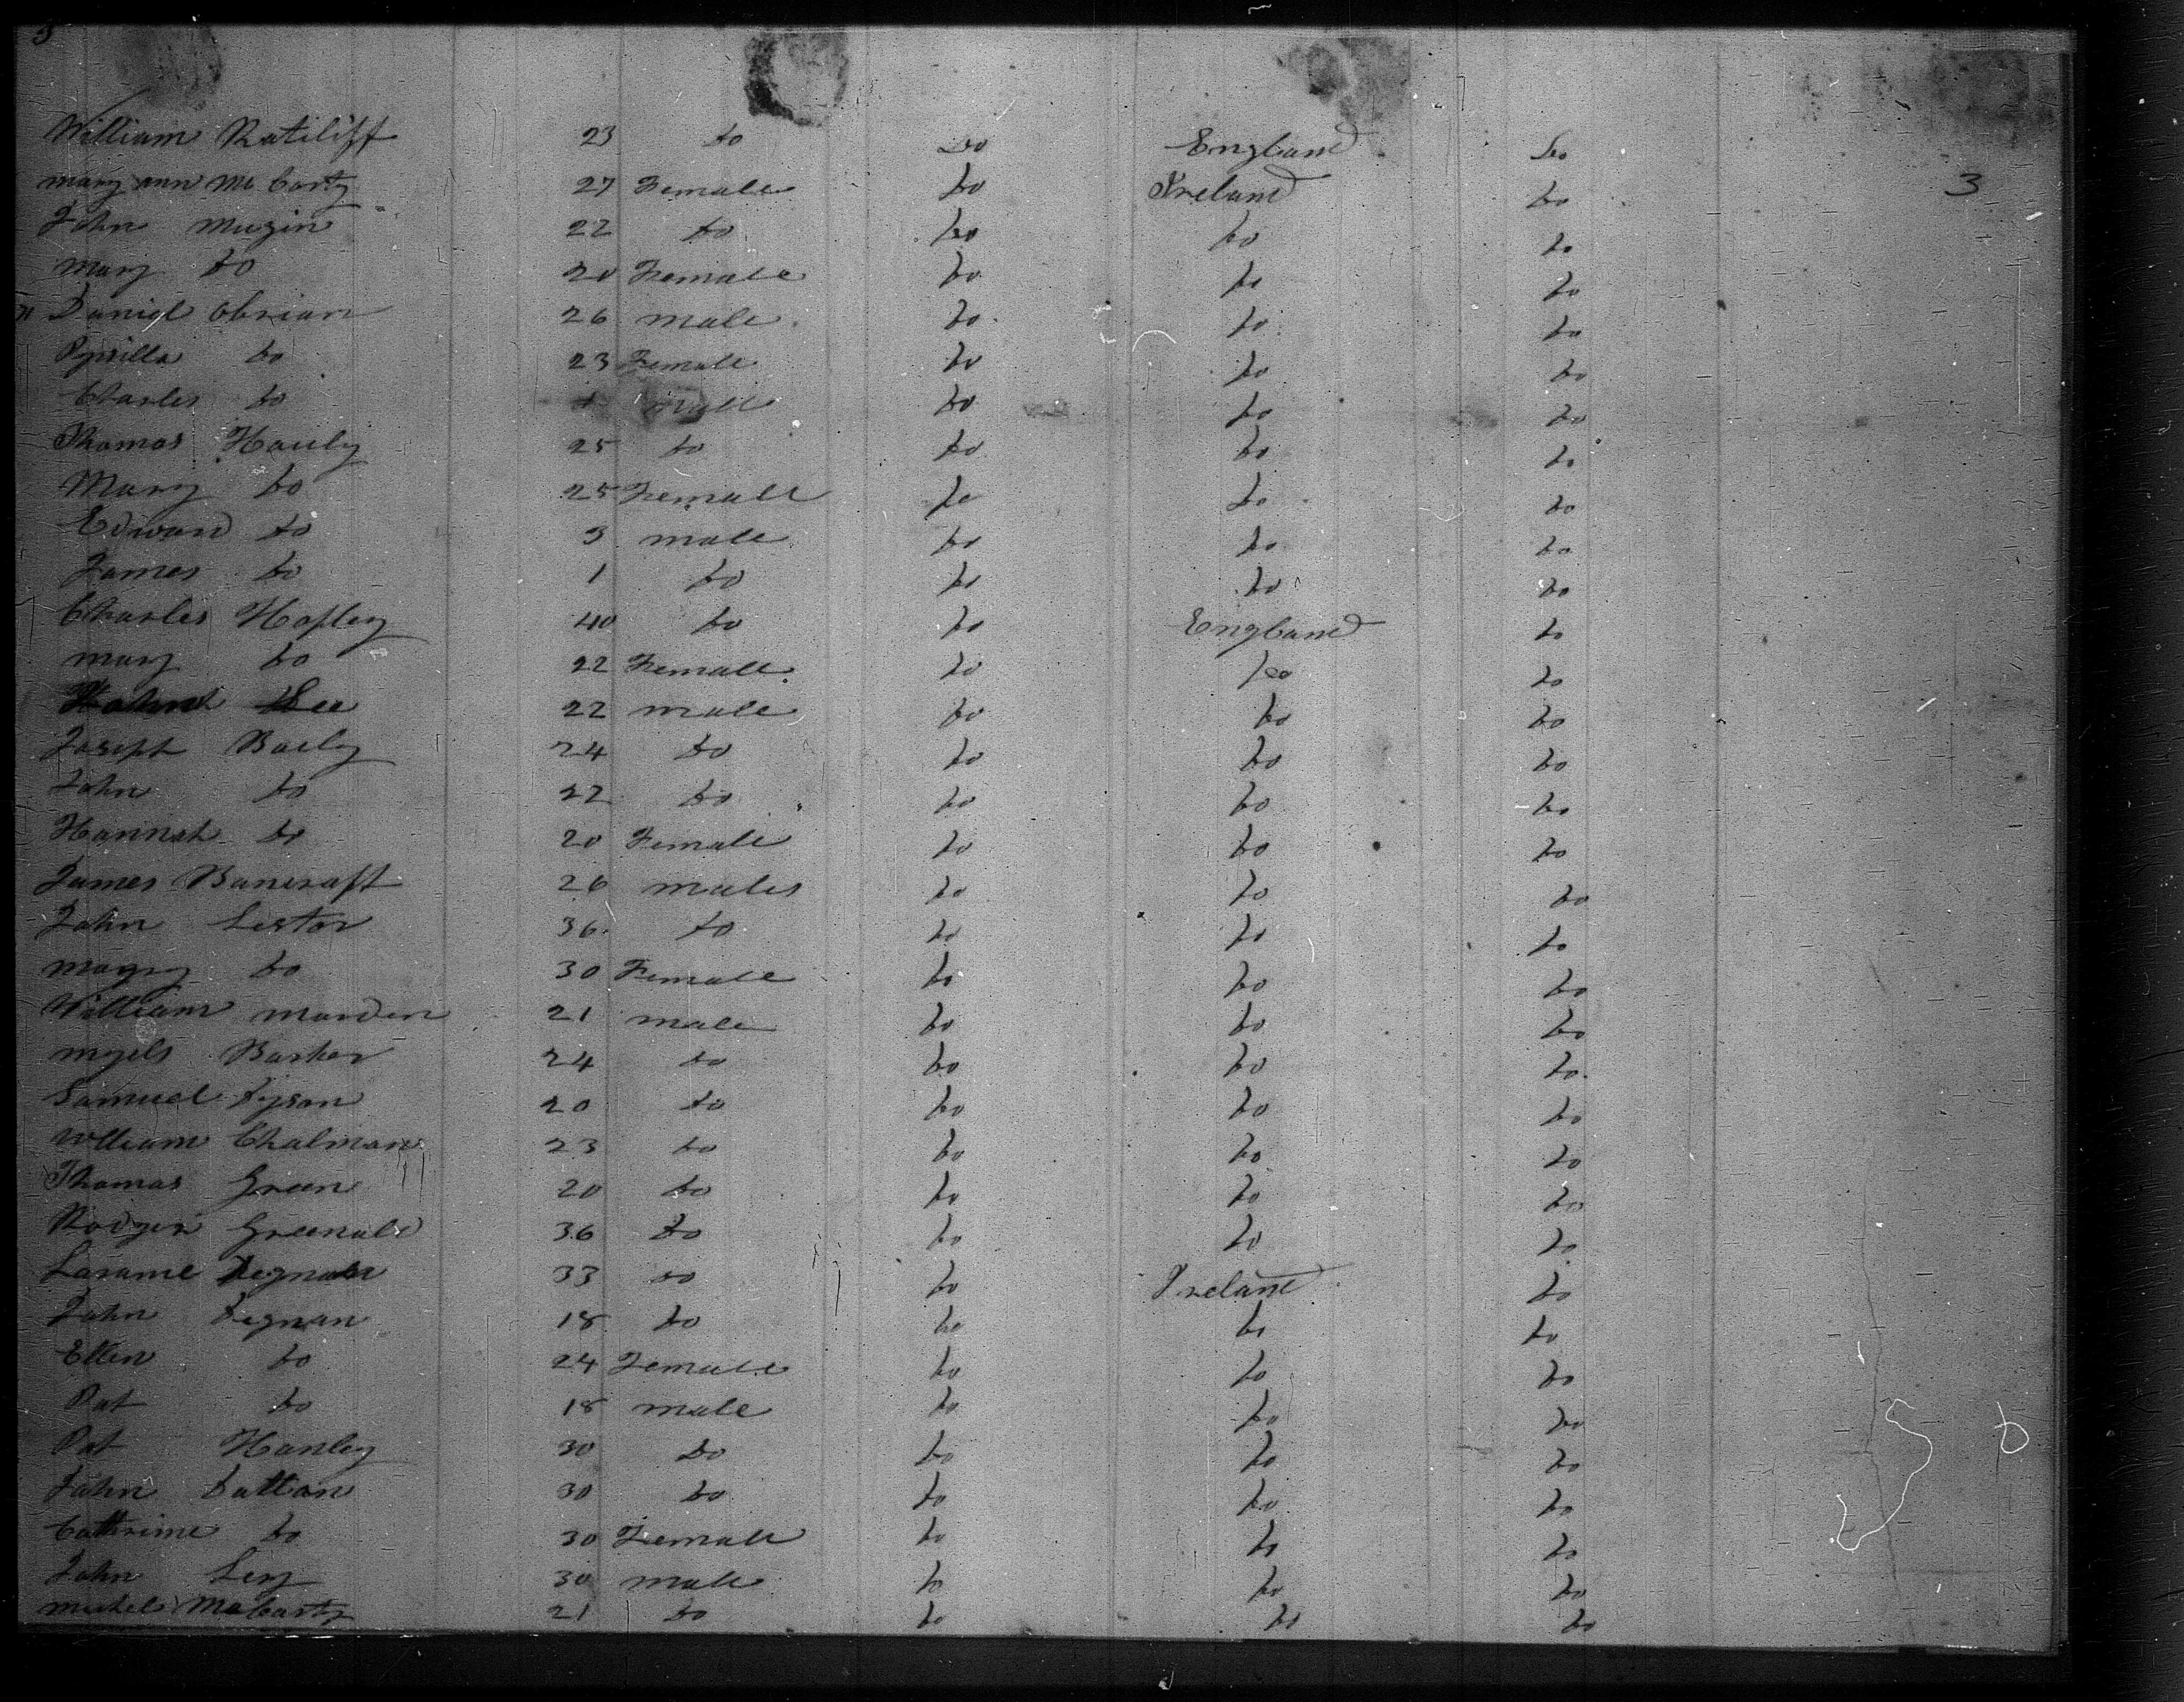 3
William Ratiliff 23 do do England do
mary ann Mc Carty 27 Female do Ireland do 3
John Mugin 22 do do do do
mary do 20 Female do do do
Daniel Obrian 26 male do do do
do 23 Female do do do
Charles do male do do do
Thomas Hauly 25 do do do do
Mary do 25 Female do do do
Edward do 3 male do do do
James do 1 do do do do
Charles Hopley 40 do do England do
mary do 22 Female do do do
Lee 22 male do do do
Joseph Baily 24 do do do do
John do 22 do do do do
Hannah do 20 Female do do do
James Bancraft 26 males do do do
John Lestor 36 do do do do
magry do 30 Female do do do
William marden 21 male do do do
myels Barker 24 do do do do
Samuel Tyson 20 do do do do
William Chalman 23 do do do do
Thomas Green 20 do do do do
Rodger Greenald 36 do do do do
Degnan 33 do do Ireland do
John Degnan 18 do do do do
Ellen do 24 Female do do do
Pat do 18 male do do do
Pat Hanley 30 do do do do
John Dattan 30 do do do do
Cathrine do 30 Female do do do
John Ley 30 male do do do
michel McCarty 21 do do do do